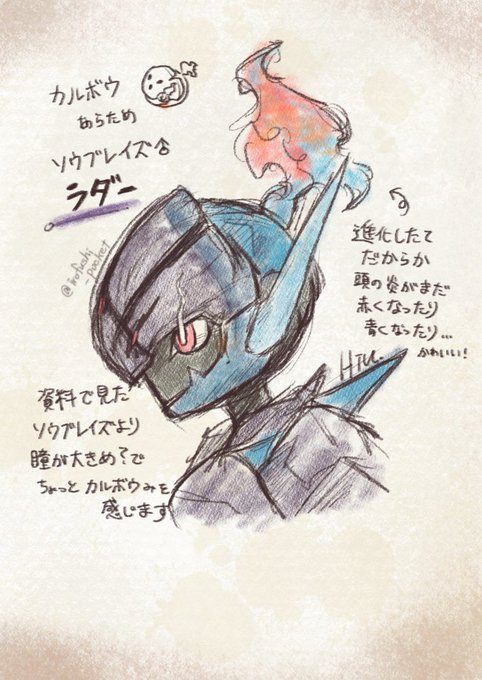 カルボウ
あらため
ソウブレイズ♂
ラダー
@irofushi
_pocket
進化したて
だからか
頭の炎がまだ
赤くなったり
青くなったり…
かわいい!
資料で見た
ソウブレイズより
瞳が大きめ?で
ちょっとカルボウみを
感じます